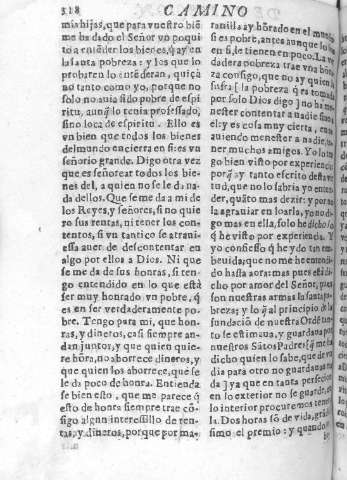 318 CAMINO
mis hijas, que para vuestro biẽ
me ha dado el Señor vn poqui
to a entẽder los bienes, q̃ ay en
la santa pobreza: y los que lo
probaren lo entẽderan, quiçà
no tanto como yo, porque no
solo no auia sido pobre de espi
ritu, aunq̃ lo tenia professado,
sino loca de espiritu. Ello es
vn bien que todos los bienes
del mundo encierra en si: es vn
señorio grande. Digo otra vez
que es señorear todos los bie
nes del, a quien no se le da na-
da dellos. Que se me da a mi de
los Reyes, y señores, si no quie
ro sus rentas, ni tener los con-
tentos, si vn tantico se atrauie
ssa auer de descontentar en
algo por ellos a Dios. Ni que
se me da de sus honras, si ten-
go entendido en lo que està
ser muy honrado vn pobre, q̃
es en ser verdaderamente po
bre. Tengo para mi, que hon-
ras, y dineros, casi siempre an-
dan juntos, y que quien quie-
re hõra, no aborrece dineros, y
que quien los aborrece, que se
le da poco de honra. Entienda
se bien esto, que me parece q̃
esto de honra siempre trae cõ
sigo algun interessillo de ren-
tas, y dineros, porque por ma-
rauilla ay hõrado en el mundo
si es pobre, antes aunque lo sea
en si, le tienen en poco. La ver
dadera pobreza trae vna hõra
za consigo, que no ay quien la
sufra [la pobreza q̃ es tomada
por solo Dios digo] no ha me-
nester contentar a nadie sino a
el: y es cosa muy cierta, en no
auiendo menester a nadie, te-
ner muchos amigos. Yo lo ten
go bien visto por experiencia:
porq̃ ay tanto escrito desta vir
tud, que no lo sabria yo enten
der, quãto mas dezir: y por no
la agrauiar en loarla, yo no di-
go mas en ella, solo he dicho lo
q̃ he visto por experiencia. Y
yo confiesso q̃ he ydo tan em-
beuida, que no me he entendi-
do hasta aora: mas pues està di-
cho por amor del Señor, pues
son nuestras armas la santa po-
breza; y lo q̃ al principio de la
fundaciõ de nuestra Ordẽ tan-
to se estimaua, y guardaua por
nuestros Sãtos Padres [q̃ me ha
dicho quien lo sabe, que de vn
dia para otro no guardauan na
da] ya que en tanta perfecion
en lo exterior no se guarde, en
lo interior procuremos tener-
la. Dos horas sõ de vida, grãdis
simo el premio: y quando no